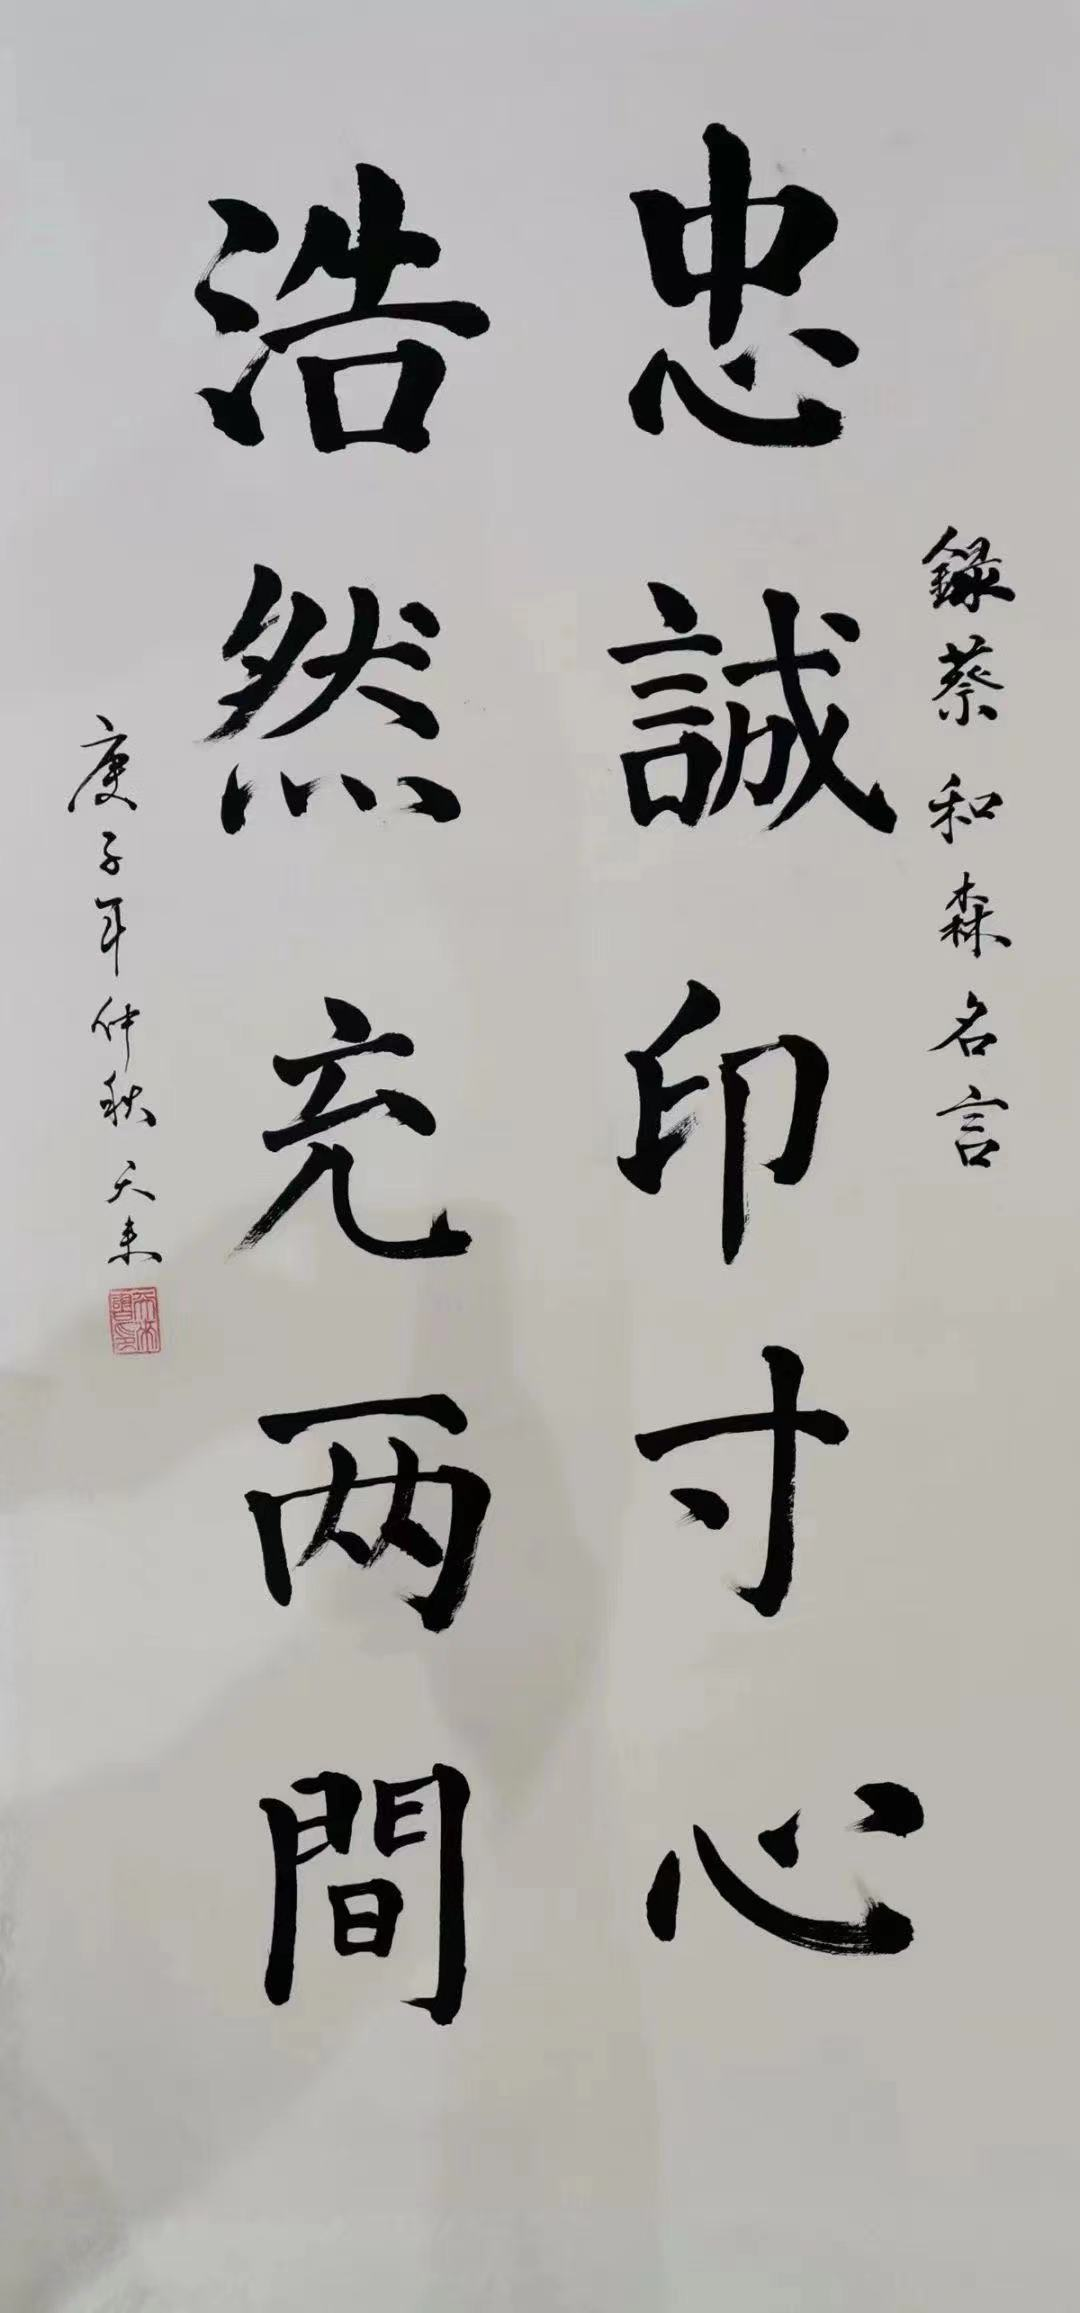 錄蔡和森名言
忠誠印寸心
浩然充两間
庚子年仲秋天来